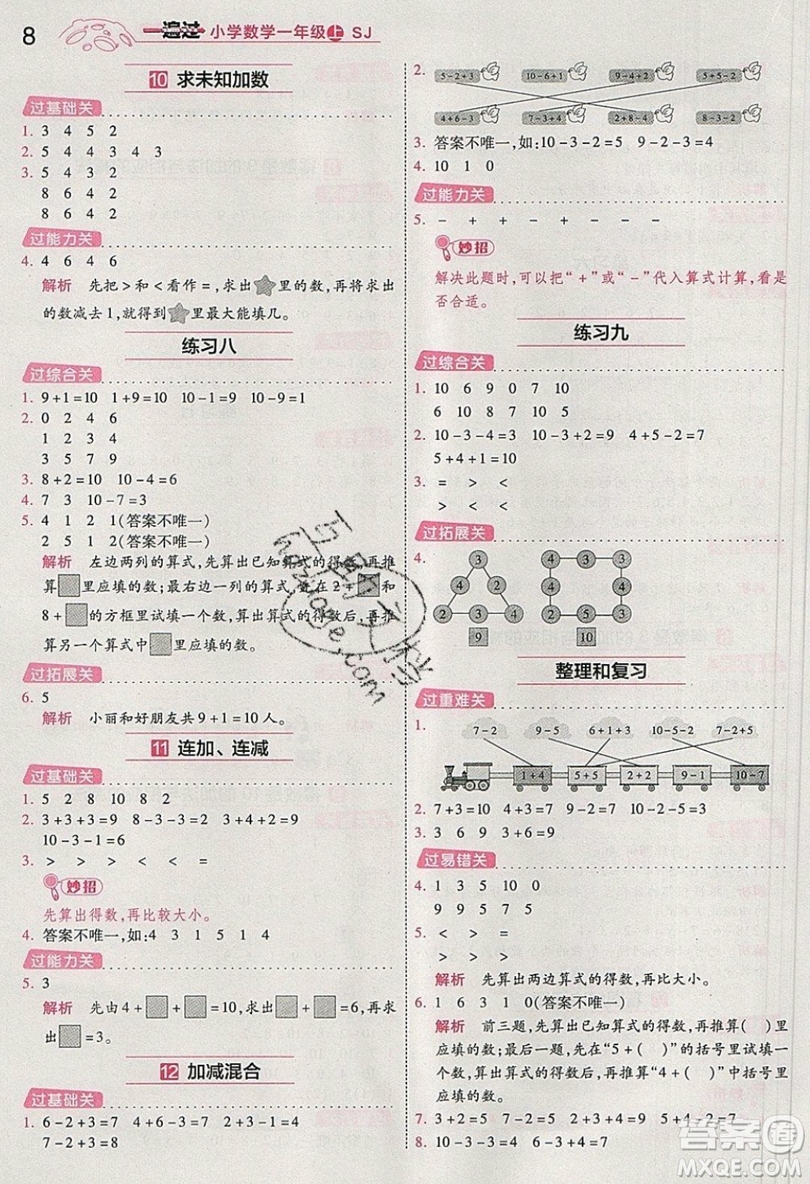 8
一遍过 小学数学一年级上 SJ
10 求未知加数
过基础关
1. 3 4 5 2
2. 5 4 4 3 4 3
3. 5 4 3 2
8 6 4 2
8 6 4 2
过能力关
4. 4 6 4 6
解析 先把>和<看作=,求出☆里的数,再将求出
的数减去1,就得到☆里最大能填几。
练习八
过综合关
1. 9+1=10 1+9=10 10-9=1
2. 0 2 4 6
1 3 4 6
3 5 7 9
3. 8+2=10 10-4=6
4. 7 3 10-7=3
5. 4 1 2 1(答案不唯一)
2 5 1 2(答案不唯一)
解析 左边两列的算式,先算出已知算式的得数,再推
算□里应填的数;最右边一列的算式,先在2+□和
8+□的方框里试填一个数,算出算式的得数后,再推
算另一个算式中□里应填的数。
过拓展关
6. 5
解析 小丽和好朋友共9+1=10人。
11 连加、连减
过基础关
1. 5 2 8 10 8 2
2. 3+3+3=9 8-3-3=2 3+2+4=9
10-3-1=6
3. > > > > < >
妙招
先算出得数,再比较大小。
4. 答案不唯一,如:4 3 1 5 1 4
过能力关
5. 3
解析 先由4+□+□=10,求出□+□=6,
所以□=3。
12 加减混合
过基础关
1. 6-2+3=7 2+3-4=1 3+2-1=4
7-2+3=8
2.
5-2+3 10-6+1 9-4+2 5+5-2
4+6-3 7-3+4 2+8-4 8-3-2
3. 答案不唯一,如:10-3-2=5 9-2-3=4
4. 10 1 0
过能力关
5. - + + - + - - +
妙招
解决此题时,可以把“+”或“-”代入算式计算,看是
否合适。
练习九
过综合关
1. 10 6 9 0 7 10
6 10 8 7 10 5
2. 10-3-4=3 10-4=6 4+5-2=7
5+4+1=10
3. = > > <
> < < <
过拓展关
4.
3 4 2 4 2 3 9
3 4 3 2 4 5 3 2 10
整理和复习
过重难关
1.
7-2 9-5 6+1+3 10-8 6-2+3
1+4 5+5 2+2 9-1 10-7
2. 7+3=10 4+3=7 9-2=7 8-2=6
3. 3 6 9 3+6=9
过易错关
4. 1 3 5 10 0
9 9 5 7 5
5. < < > <
> > > >
解析 先算出两边算式的得数,再比较大小。
6. 1 6 3 1 0(答案不唯一)
解析 前三题,先算出已知算式的得数,再推算( )里
应填的数;最后一题,先在“5+( )”的括号里试填一
个数,算出算式的得数后,再推算“4+( )”的括号里
应填的数。
7. 3+2+2=7
8. 10-3-3=4
答案圈
MXQE.COM